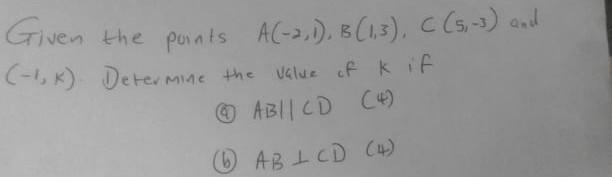 Given the points A(-2,1), B(1,3), C(5,-3) and
(-1, K). Determine the value of K if
ⓐ AB||CD (4)
ⓑ AB ⊥ CD (4)